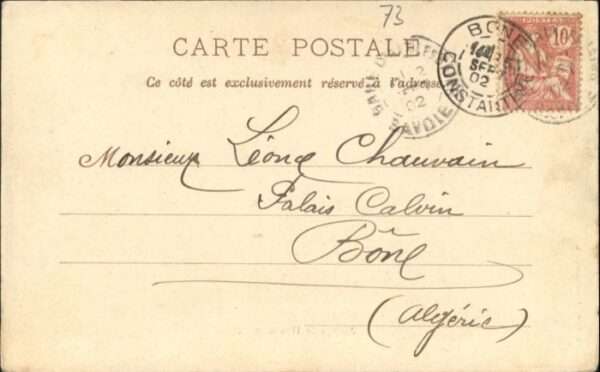 73
CARTE POSTALE
Ce côté est exclusivement réservé à l'adresse
POSTES
10
BONE
SEPT
02
CONSTANTINE
02
SAVOIE
Monsieur Léonce Chauvain
Palais Calvin
Bône
(Algérie)